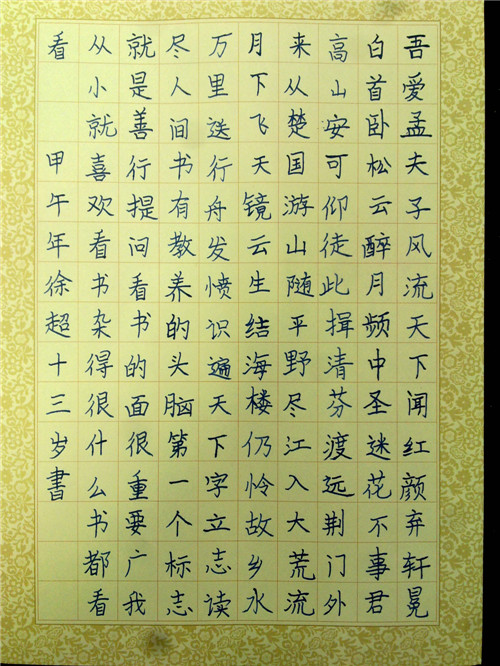 吾爱孟夫子风流天下闻红颜弃轩冕
白首卧松云醉月频中圣迷花不事君
高山安可仰徒此揖清芬渡远荆门外
来从楚国游山随平野尽江入大荒流
月下飞天镜云生结海楼仍怜故乡水
万里送行舟发愤识遍天下字立志读
尽人间书有教养的头脑第一个标志
就是善行提问看书的面很重要广我
从小就喜欢看书杂得很什么书都看
看 甲午年徐超十三岁書